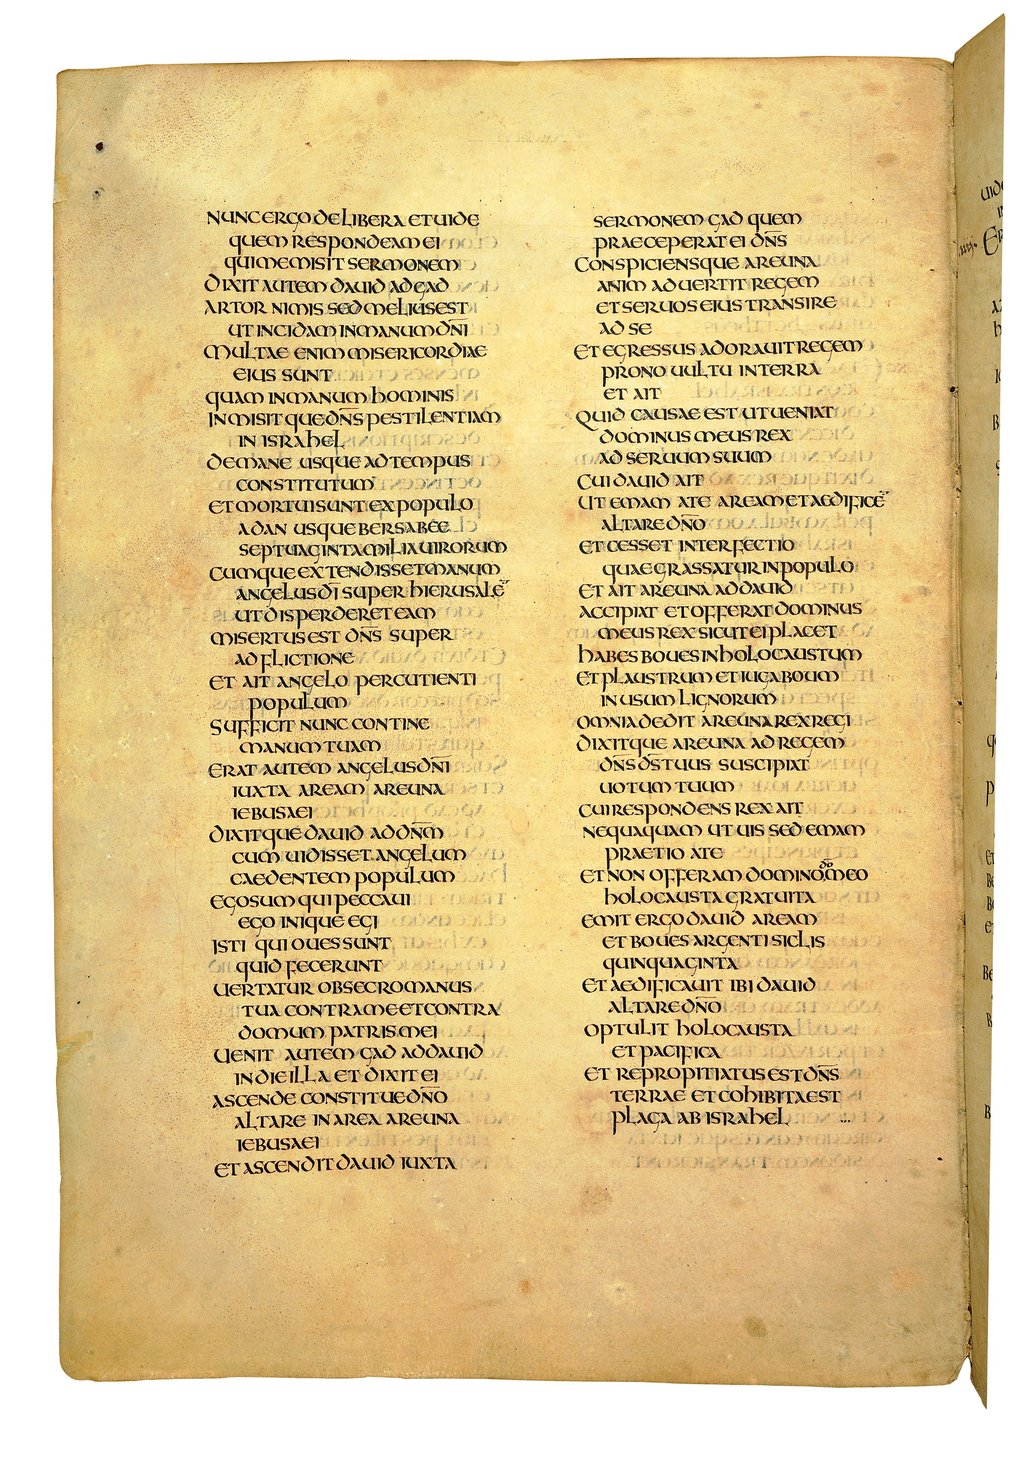 NUNC ERGO DELIBERA ET UIDE
QUEM RESPONDEAM EI
QUI ME MISIT SERMONEM
DIXIT AUTEM DAUID AD GAD
ARTOR NIMIS SED MELIUS EST
UT INCIDAM IN MANUM DN̄I
MULTAE ENIM MISERICORDIAE
EIUS SUNT
QUAM IN MANUM HOMINIS
INMISITQUE DN̄S PESTILENTIAM
IN ISRAHEL
DE MANE USQUE AD TEMPUS
CONSTITUTUM
ET MORTUI SUNT EX POPULO
A DAN USQUE BERSABEE
SEPTUAGINTA MILIA UIRORUM
CUMQUE EXTENDISSET MANUM
ANGELUS DĪ SUPER HIERUSALĒ
UT DISPERDERET EAM
MISERTUS EST DN̄S SUPER
ADFLICTIONE
ET AIT ANGELO PERCUTIENTI
POPULUM
SUFFICIT NUNC CONTINE
MANUM TUAM
ERAT AUTEM ANGELUS DN̄I
IUXTA AREAM AREUNA
IEBUSAEI
DIXITQUE DAUID AD DN̄M
CUM UIDISSET ANGELUM
CAEDENTEM POPULUM
EGO SUM QUI PECCAUI
EGO INIQUE EGI
ISTI QUI OUES SUNT
QUID FECERUNT
UERTATUR OBSECRO MANUS
TUA CONTRA ME ET CONTRA
DOMUM PATRIS MEI
UENIT AUTEM GAD AD DAUID
IN DIE ILLA ET DIXIT EI
ASCENDE CONSTITUE DN̄O
ALTARE IN AREA AREUNA
IEBUSAEI
ET ASCENDIT DAUID IUXTA
SERMONEM GAD QUEM
PRAECEPERAT EI DN̄S
CONSPICIENSQUE AREUNA
ANIM ADUERTIT REGEM
ET SERUOS EIUS TRANSIRE
AD SE
ET EGRESSUS ADORAUIT REGEM
PRONO UULTU IN TERRA
ET AIT
QUID CAUSAE EST UT UENIAT
DOMINUS MEUS REX
AD SERUUM SUUM
CUI DAUID AIT
UT EMAM A TE AREAM ET AEDIFICĒ
ALTARE DN̄O
ET CESSET INTERFECTIO
QUAE GRASSATUR IN POPULO
ET AIT AREUNA AD DAUID
ACCIPIAT ET OFFERAT DOMINUS
MEUS REX SICUT EI PLACET
HABES BOUES IN HOLOCAUSTUM
ET PLAUSTRUM ET IUGA BOUM
IN USUM LIGNORUM
OMNIA DEDIT AREUNA REX REGI
DIXITQUE AREUNA AD REGEM
DN̄S DS̄ TUUS SUSCIPIAT
UOTUM TUUM
CUI RESPONDENS REX AIT
NEQUAQUAM UT UIS SED EMAM
PRAETIO A TE
ET NON OFFERAM DOMINO DŌ MEO
HOLOCAUSTA GRATUITA
EMIT ERGO DAUID AREAM
ET BOUES ARGENTI SICLIS
QUINQUAGINTA
ET AEDIFICAUIT IBI DAUID
ALTARE DN̄O
OPTULIT HOLOCAUSTA
ET PACIFICA
ET REPROPITIATUS EST DN̄S
TERRAE ET COHIBITA EST
PLAGA AB ISRAHEL